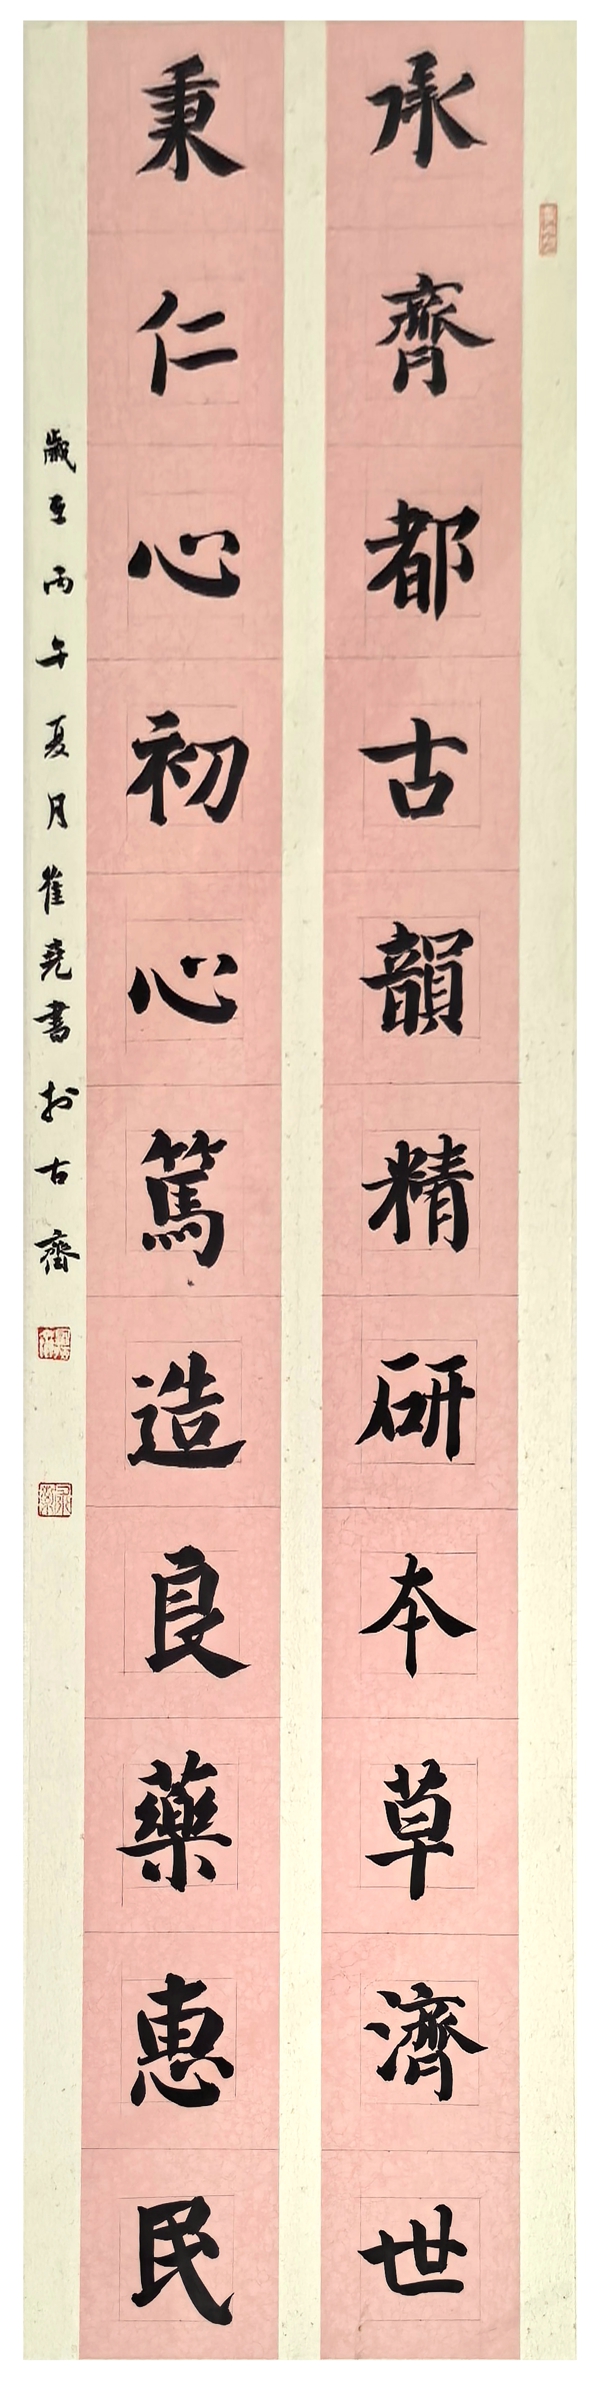 承齊都古韻精研本草濟世
秉仁心初心篤造良藥惠民
歲在丙午夏月崔堯書於古齊